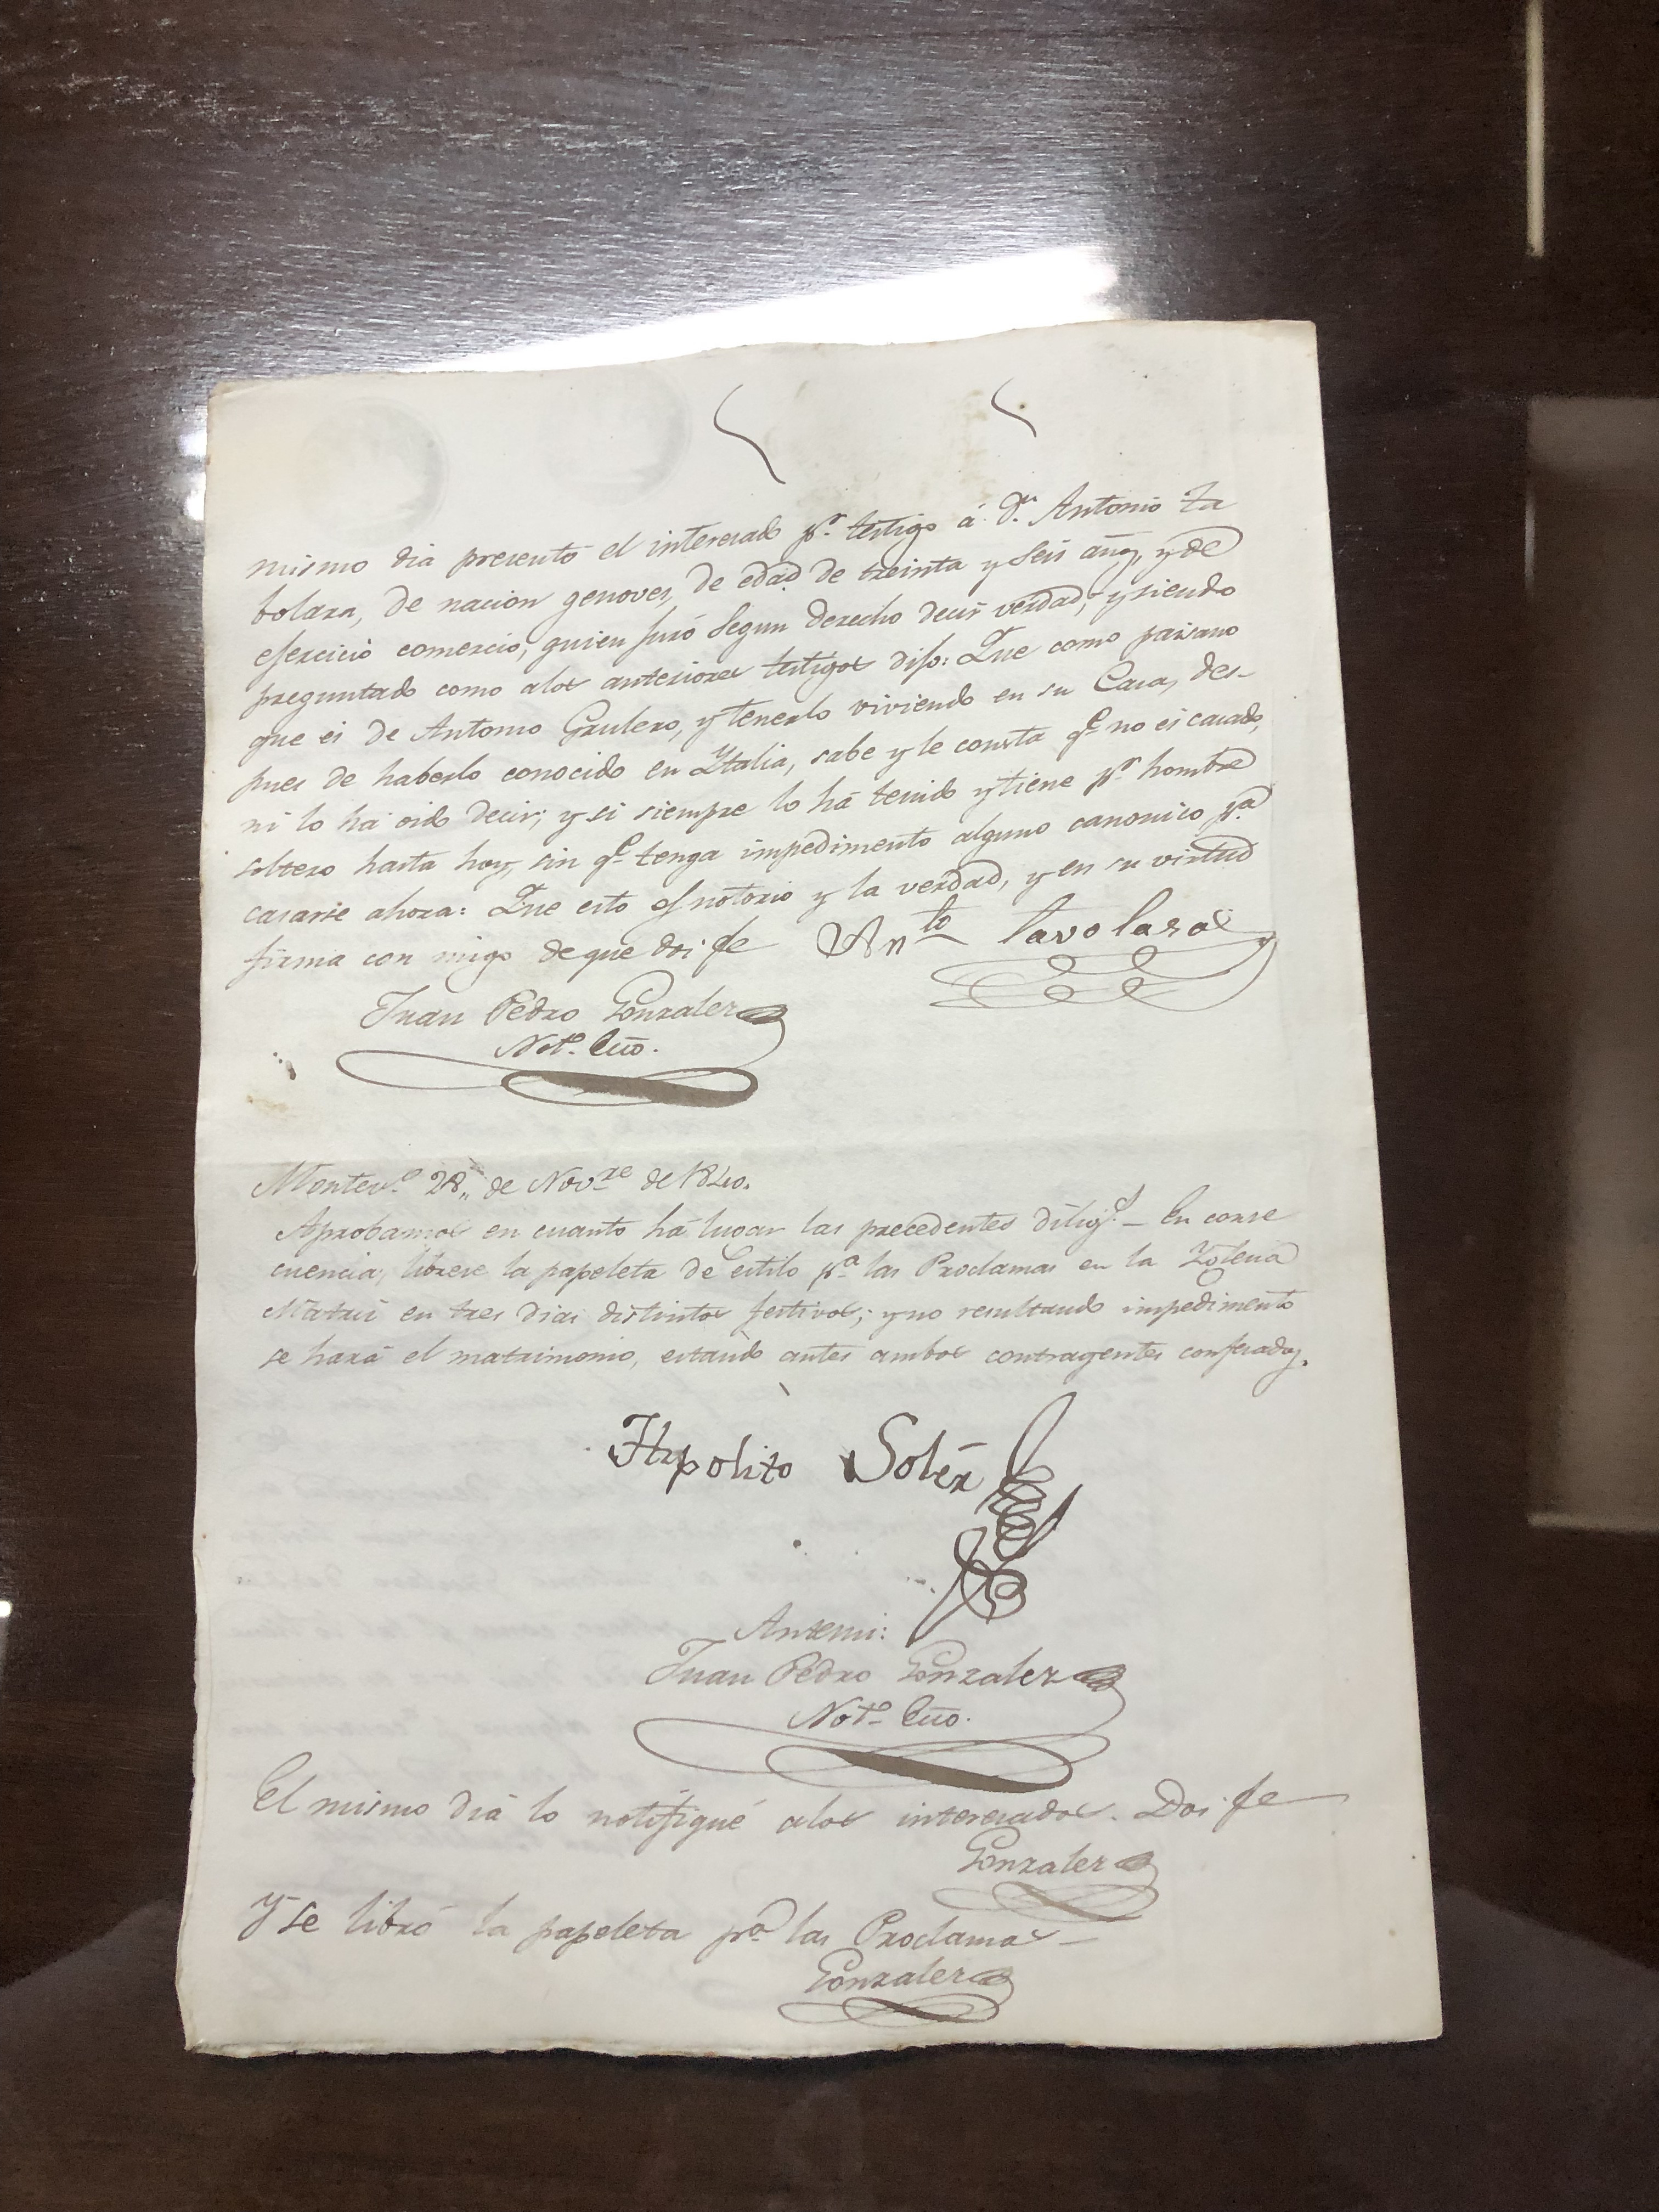 mismo dia presentó el interesado p.r testigo á D.n Antonio Ta
bolara, de nacion genoves, de edad de treinta y seis añ.s, y de
ejercicio comercio, quien juró segun derecho decir verdad, y siendo
preguntado como alos anteriores testigos dijo: Que como paisano
que es de Antonio Grulero, y tenerlo viviendo en su Casa, des-
pues de haberlo conocido en Ytalia, sabe y le consta q.e no es casado,
ni lo ha oido decir; y si siempre lo há tenido y tiene p.r hombre
soltero hasta hoy, sin q.e tenga impedimento alguno canonico p.a
casarse ahora: Que esto es notorio y la verdad, y en su virtud
firma con migo de que doi fe Ant.to Tavolara
Juan Pedro Gonzalez
Not.o Ecco.
Montev.o 28,, de Nov.re de 1840.
Aprobamos en cuanto há lugar las precedentes dilig.s – En conse
cuencia, librese la papeleta de estilo p.a las Proclamas en la Yglesia
Matriz en tres dias distintos festivos; y no resultando impedimento
se hará el matrimonio, estando antes ambos contragentes confesados.
Hypolito Soler
Antemi:
Juan Pedro Gonzalez
Not.o Ecco.
El mismo dia lo notifiqué alos interesados. Doi fe
Gonzalez
Y se libró la papeleta p.a las Proclamas –
Gonzalez